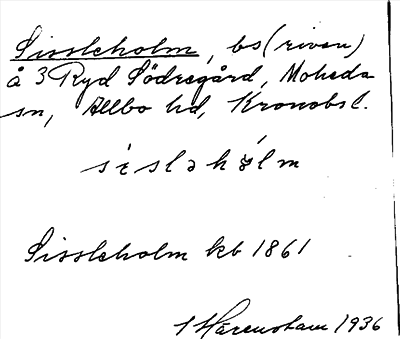 Sissleholm, bs (riven)
å 3 Ryd Södregård, Moheda
sn, Allbo hd, Kronobs l.
sísləhòlm
Sissleholm kb 1861
Härenstam 1936